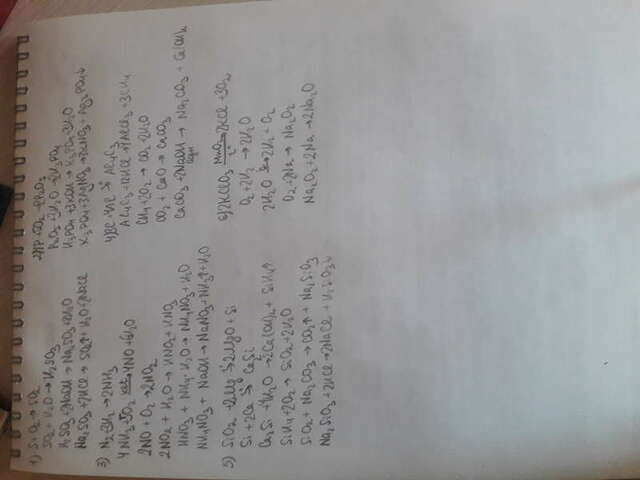 1) S + O₂ → SO₂
SO₂ + H₂O → H₂SO₃
H₂SO₃ + 2NaOH → Na₂SO₃ + 2H₂O
Na₂SO₃ + 2HCl → SO₂↑ + H₂O + 2NaCl
2) 4P + 5O₂ → 2P₂O₅
P₂O₅ + 3H₂O → 2H₃PO₄
H₃PO₄ + 3KOH → K₃PO₄ + 3H₂O
K₃PO₄ + 3AgNO₃ → 3KNO₃ + Ag₃PO₄↓
3) N₂ + 3H₂ → 2NH₃
4NH₃ + 5O₂ кат→ 4NO + 6H₂O
2NO + O₂ → 2NO₂
2NO₂ + H₂O → HNO₂ + HNO₃
HNO₃ + NH₃·H₂O → NH₄NO₃ + H₂O
NH₄NO₃ + NaOH → NaNO₃ + NH₃↑ + H₂O
4) 3C + 4Al → Al₄C₃
Al₄C₃ + 12HCl → 4AlCl₃ + 3CH₄
CH₄ + 2O₂ → CO₂ + 2H₂O
CO₂ + CaO → CaCO₃
CaCO₃ + 2NaOH → Na₂CO₃ + Ca(OH)₂
5) SiO₂ + 2Mg → 2MgO + Si
Si + 2Ca → Ca₂Si
Ca₂Si + 4H₂O → 2Ca(OH)₂ + SiH₄↑
SiH₄ + 2O₂ → SiO₂ + 2H₂O
SiO₂ + Na₂CO₃ → CO₂↑ + Na₂SiO₃
Na₂SiO₃ + 2HCl → 2NaCl + H₂SiO₃↓
6) 2KClO₃ MnO₂→ 2KCl + 3O₂
O₂ + 2H₂ → 2H₂O
2H₂O → 2H₂ + O₂
O₂ + 2Na → Na₂O₂
Na₂O₂ + 2Na → 2Na₂O